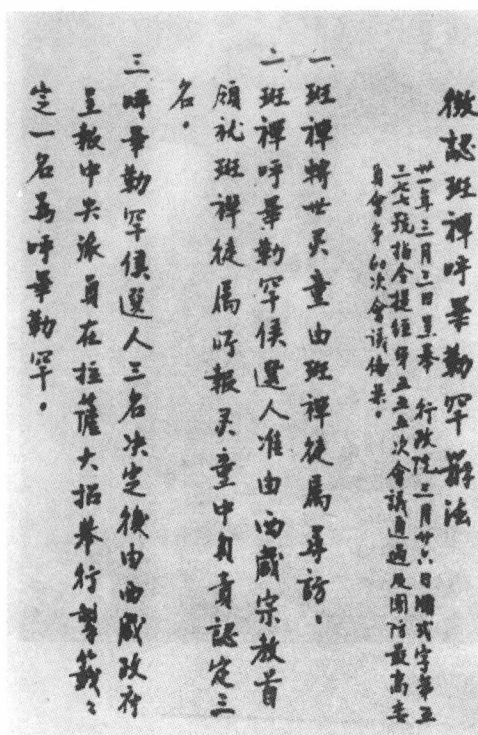 徵認班禪呼畢勒罕辦法
卅一年三月三日呈奉 行政院三月廿六日順弍字第五
二七七號指令提經第五五五次會議通過及國防最高委
員會第 次會議備案。
一、班禪轉世灵童由班禪徒屬尋訪。
二、班禪呼畢勒罕候選人准由西藏宗教首
領就班禪徒屬所報灵童中負責認定三
名。
三、呼畢勒罕候選人三名决定後由西藏政府
呈報中央派員在拉薩大招举行掣籤掣
定一名為呼畢勒罕。